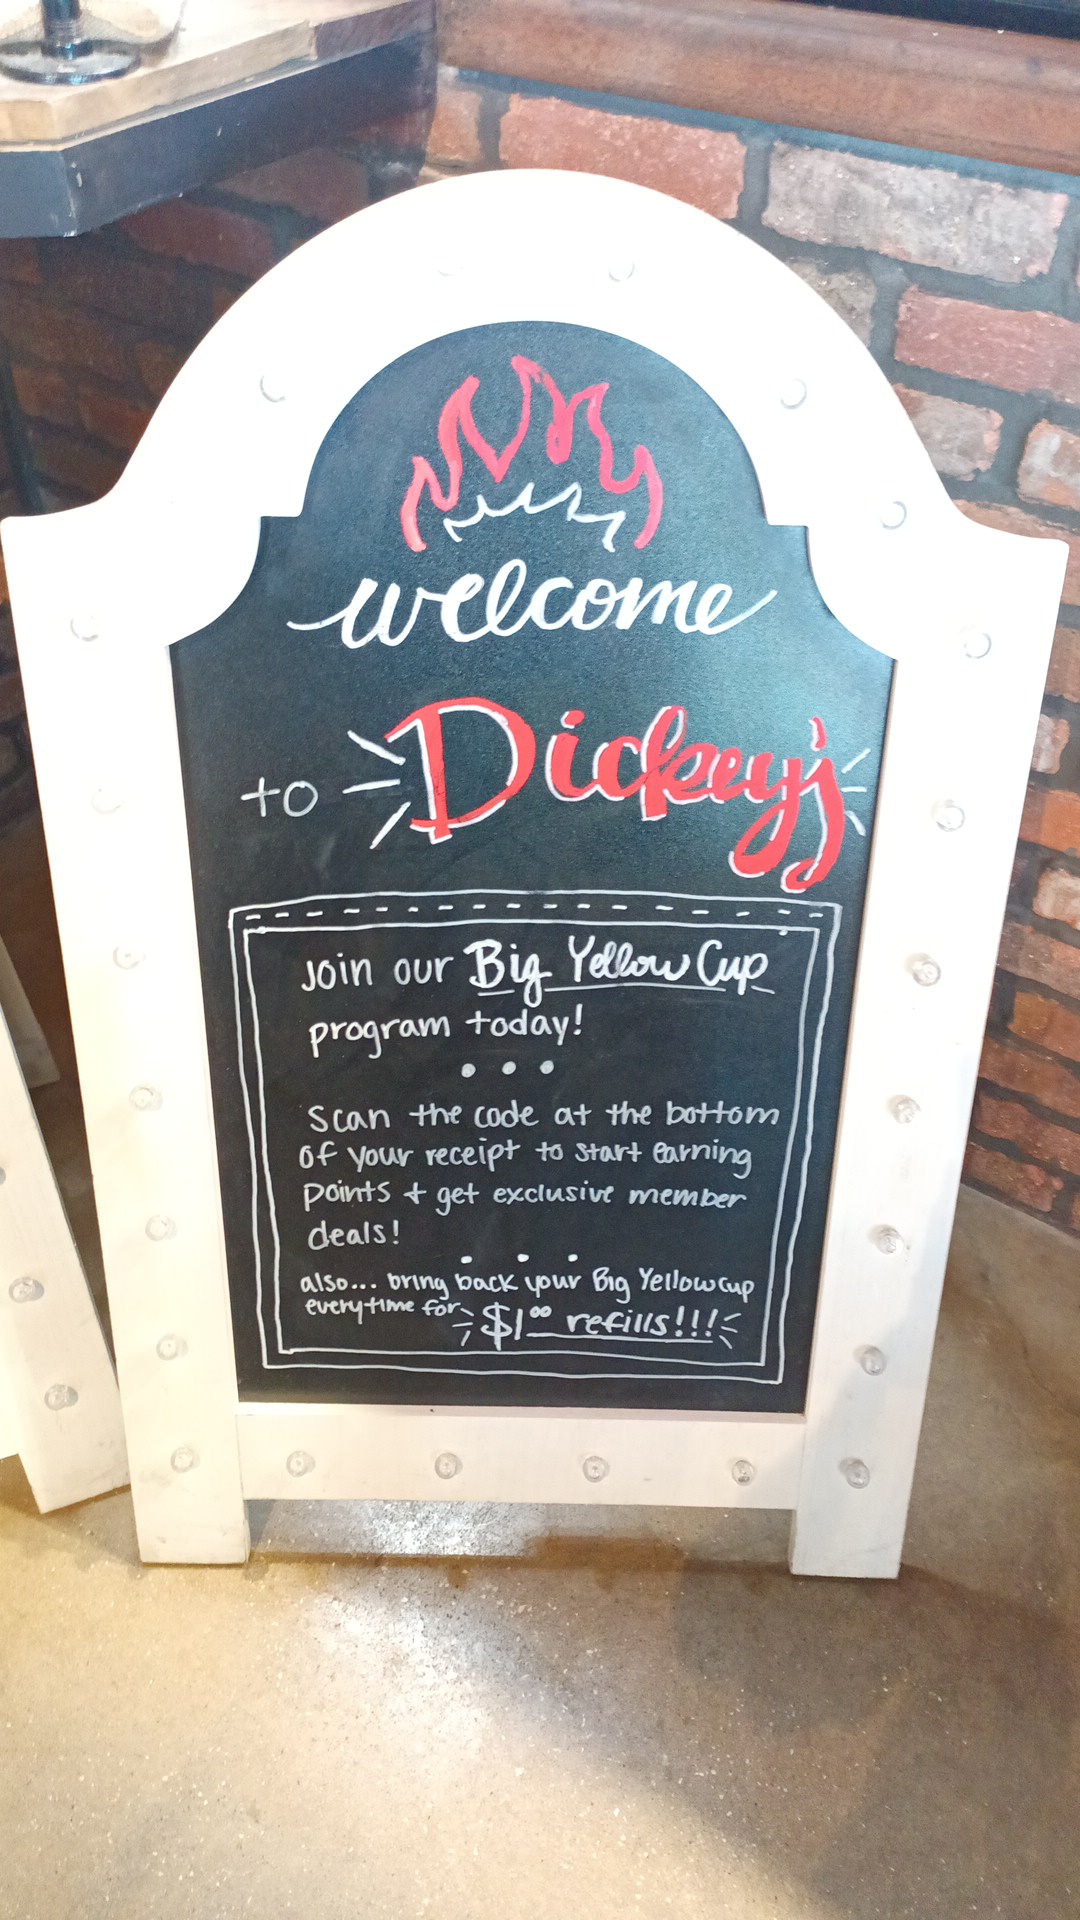 welcome
to Dickey's
Join our Big Yellow Cup
program today!
Scan the code at the bottom
of your receipt to start earning
points + get exclusive member
deals!
also... bring back your Big Yellow cup
everytime for $1.00 refills!!!